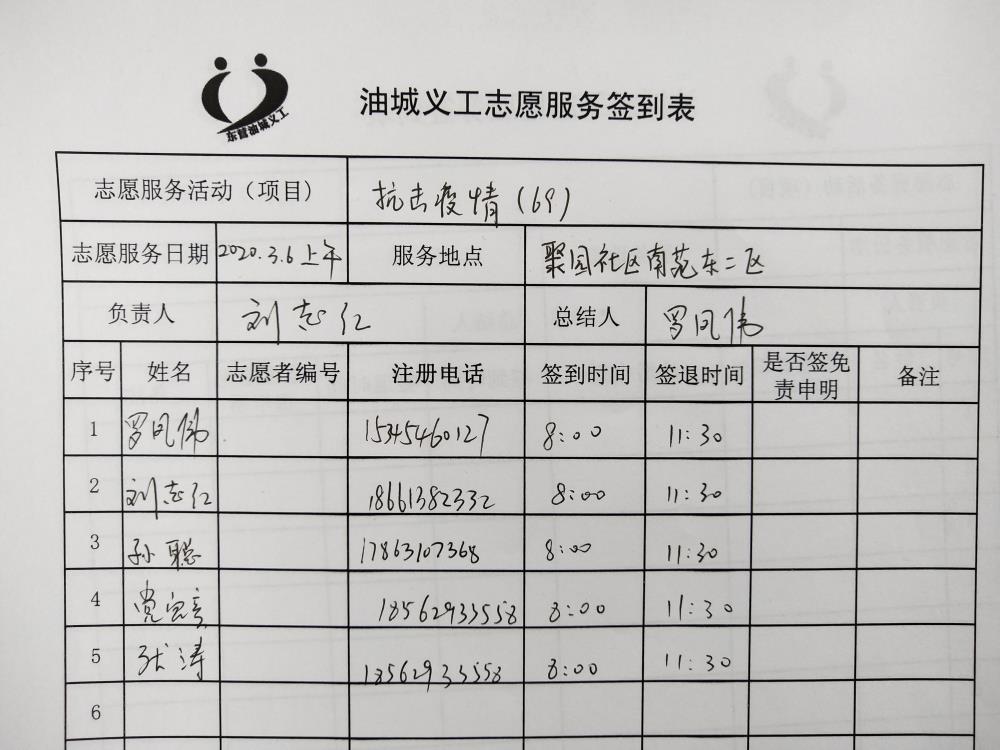 东营油城义工
油城义工志愿服务签到表
志愿服务活动（项目） 抗击疫情(69)
志愿服务日期 2020.3.6上午 服务地点 聚园社区南苑东二区
负责人 刘志红 总结人 罗凤伟
序号 姓名 志愿者编号 注册电话 签到时间 签退时间 是否签免责申明 备注
1 罗凤伟 15345460127 8:00 11:30
2 刘志红 18661382332 8:00 11:30
3 孙聪 17863107368 8:00 11:30
4 18562933558 8:00 11:30
5 张涛 18562933558 8:00 11:30
6